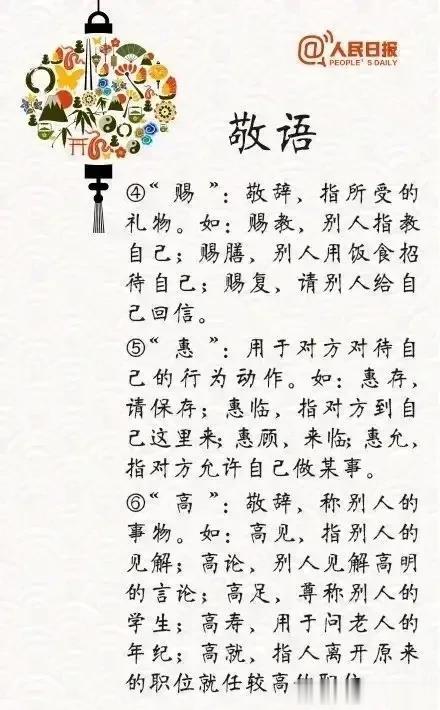 @人民日报
PEOPLE'S DAILY
敬语
④“赐”：敬辞，指所受的
礼物。如：赐教，别人指教
自己；赐膳，别人用饭食招
待自己；赐复，请别人给自
己回信。
⑤“惠”：用于对方对待自
己的行为动作。如：惠存，
请保存；惠临，指对方到自
己这里来；惠顾，来临；惠允，
指对方允许自己做某事。
⑥“高”：敬辞，称别人的
事物。如：高见，指别人的
见解；高论，别人见解高明
的言论；高足，尊称别人的
学生；高寿，用于问老人的
年纪；高就，指人离开原来
的职位就任较高的职位